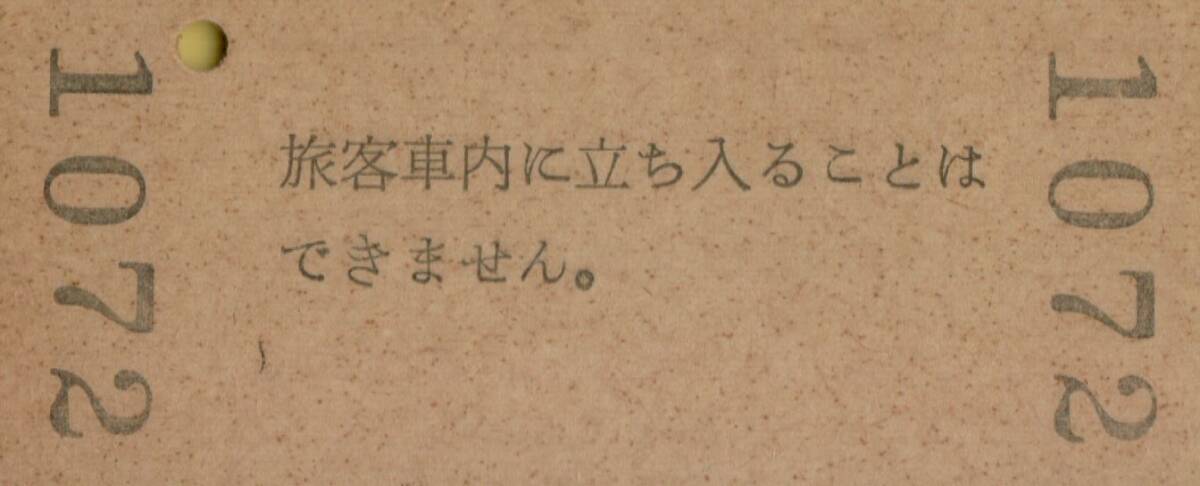 1072
旅客車内に立ち入ることは
できません。
1072